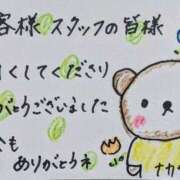 客様 スタッフの皆様
くしてくださり
がとうございました
も
ありがとうネ
ナカ